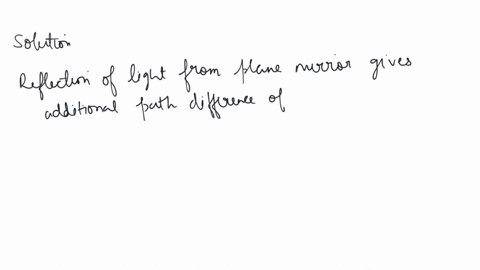 Solution
Reflection of light from plane mirror gives
additional path difference of